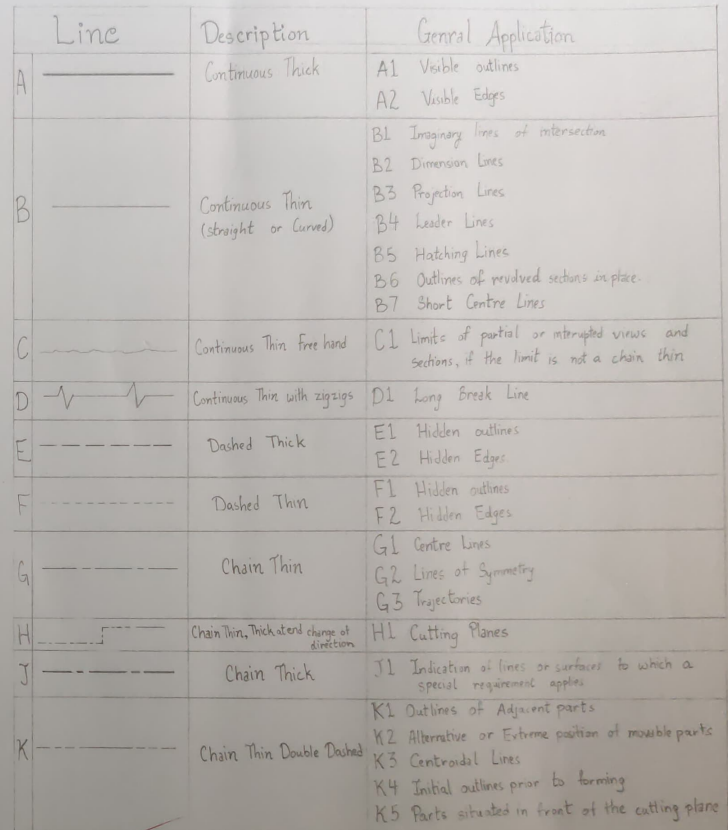 Line Description Genral Application
A Continuous Thick A1 Visible outlines
A2 Visible Edges
B Continuous Thin (straight or Curved) B1 Imaginary lines of intersection
B2 Dimension Lines
B3 Projection Lines
B4 Leader Lines
B5 Hatching Lines
B6 Outlines of revolved sections in place.
B7 Short Centre Lines
C Continuous Thin Free hand C1 Limits of partial or interupted views and
sections, if the limit is not a chain thin
D Continuous Thin with zigzigs D1 Long Break Line
E Dashed Thick E1 Hidden outlines
E2 Hidden Edges
F Dashed Thin F1 Hidden outlines
F2 Hidden Edges
G Chain Thin G1 Centre Lines
G2 Lines of Symmetry
G3 Trajectories
H Chain Thin, Thick at end change of
direction H1 Cutting Planes
J Chain Thick J1 Indication of lines or surfaces to which a
special requirement applies
K Chain Thin Double Dashed K1 Outlines of Adjacent parts
K2 Alternative or Extreme position of movable parts
K3 Centroidal Lines
K4 Initial outlines prior to forming
K5 Parts situated in front of the cutting plane